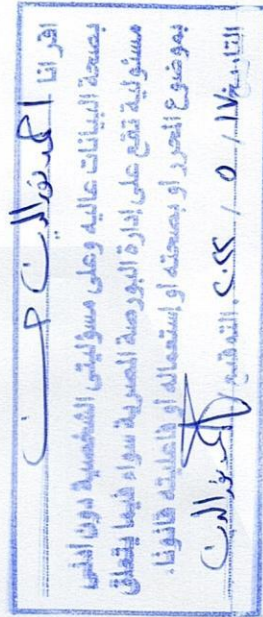 اقر انا احمد نور الدين
بصحة البيانات عاليه وعلى مسؤليتى الشخصية دون ادنى
مسئولية تقع على إدارة البورصة المصرية سواء فيما يتعلق
بموضوع المحرر او بصحته او إستعماله او فاعليته قانونا.
التاريخ ١٧ / ٥ / ٢٠٢٢ ، التوقيع / احمد نور الدين